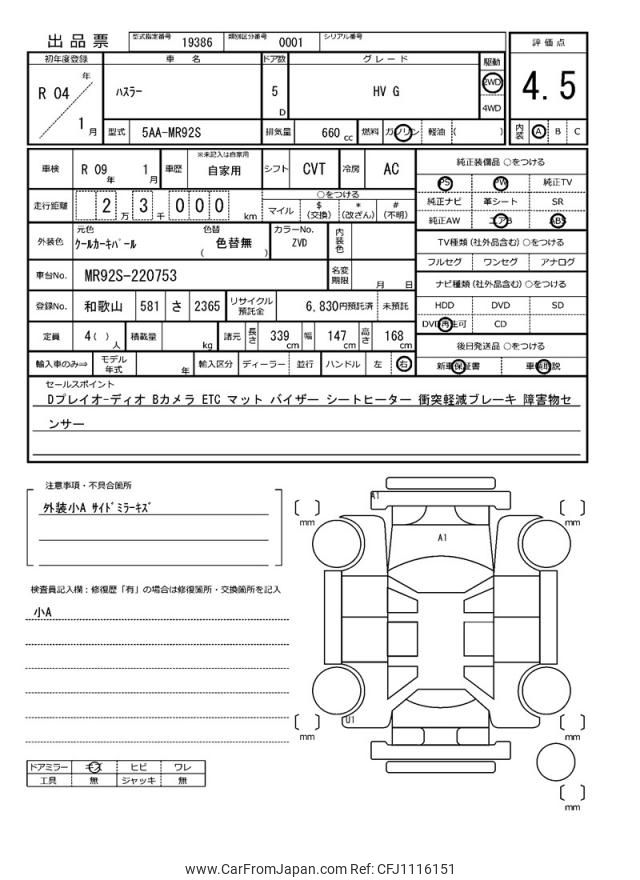 出品票 型式指定番号 19386 類別区分番号 0001 シリアル番号
評価点
4.5
内装 A B C
初年度登録 車名 ドア数 グレード 駆動
R 04 年 1 月
ハスラー 5 D HV G 2WD 4WD
型式 5AA-MR92S 排気量 660 cc 燃料 ガソリン 軽油 ( )
車検 R 09 年 1 月 車歴 ※未記入は自家用 自家用 シフト CVT 冷房 AC
走行距離 2 万 3 千 0 0 0 km ○をつける
マイル $ (交換) * (改ざん) # (不明)
外装色 元色 クールカーキパール 色替 ( 色替無 ) カラーNo. ZVD 内装色
車台No. MR92S-220753 名変期限 月 日
登録No. 和歌山 581 さ 2365 リサイクル預託金 6,830円預託済 未預託
定員 4( ) 人 積載量 kg 諸元 長さ 339 cm 幅 147 cm 高さ 168 cm
輸入車のみ⇒ モデル年式 年 輸入区分 ディーラー 並行 ハンドル 左 右
純正装備品 ○をつける
PS PW 純正TV
純正ナビ 革シート SR
純正AW エアB ABS
TV種類(社外品含む)○をつける
フルセグ ワンセグ アナログ
ナビ種類(社外品含む)○をつける
HDD DVD SD
DVD再生可 CD
後日発送品 ○をつける
新車保証書 車輌取説
セールスポイント
Dプレイオ-ディオ Bカメラ ETC マット バイザー シートヒーター 衝突軽減ブレーキ 障害物セ
ンサー
注意事項・不具合箇所
外装小A サイドミラーキズ
検査員記入欄：修復歴「有」の場合は修復箇所・交換箇所を記入
小A
A1
A1
U1
mm
mm
mm
mm
mm
ドアミラー キズ ヒビ ワレ
工具 無 ジャッキ 無
www.CarFromJapan.com Ref: CFJ1116151